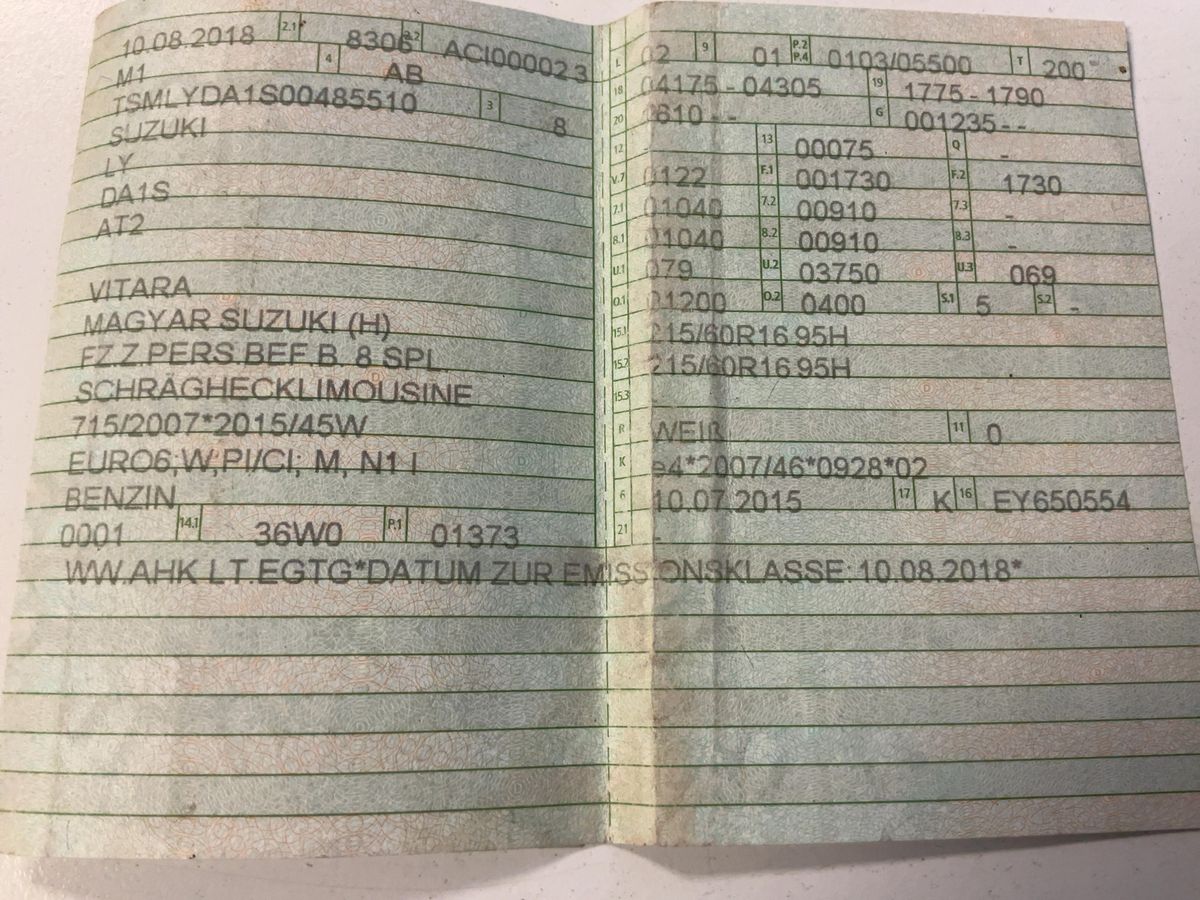 10.08.2018 2.1 8306 2.2 ACI000023
M1 4 AB
TSMLYDA1S00485510 3 8
SUZUKI
LY
DA1S
AT2
VITARA
MAGYAR SUZUKI (H)
FZ.Z.PERS.BEF.B. 8 SPL.
SCHRÄGHECKLIMOUSINE
715/2007*2015/45W
EURO6;W,PI/CI; M, N1 I
BENZIN
0001 14.1 36W0 P.1 01373
L 02 9 01 P.2 P.4 0103/05500 T 200
18 04175 - 04305 19 1775 - 1790
20 1610 - - G 001235 - -
12 - 13 00075 Q -
V.7 0122 F.1 001730 F.2 1730
7.1 01040 7.2 00910 7.3 -
8.1 01040 8.2 00910 8.3 -
U.1 079 U.2 03750 U.3 069
O.1 01200 O.2 0400 S.1 5 S.2 -
15.1 215/60R16 95H
15.2 215/60R16 95H
15.3
R WEIß 11 0
K e4*2007/46*0928*02
6 10.07.2015 17 K 16 EY650554
21 -
WW.AHK LT.EGTG*DATUM ZUR EMISSIONSKLASSE: 10.08.2018*